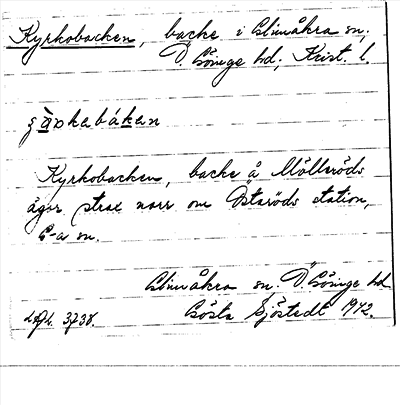 Kyrkobacken, backe i Glimåkra sn,
Ö. Göinge hd, Krist. l.
Kyrkobacken, backe å Mölleröds
ägor strax norr om Östaröds station,
G-a sn.
Glimåkra sn. Ö. Göinge hd
Gösta Sjöstedt 1942.